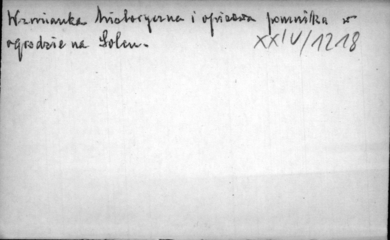 Wzmianka historyczna i opisowa pomnika w
ogrodzie na Solcu.
XXIV/1218